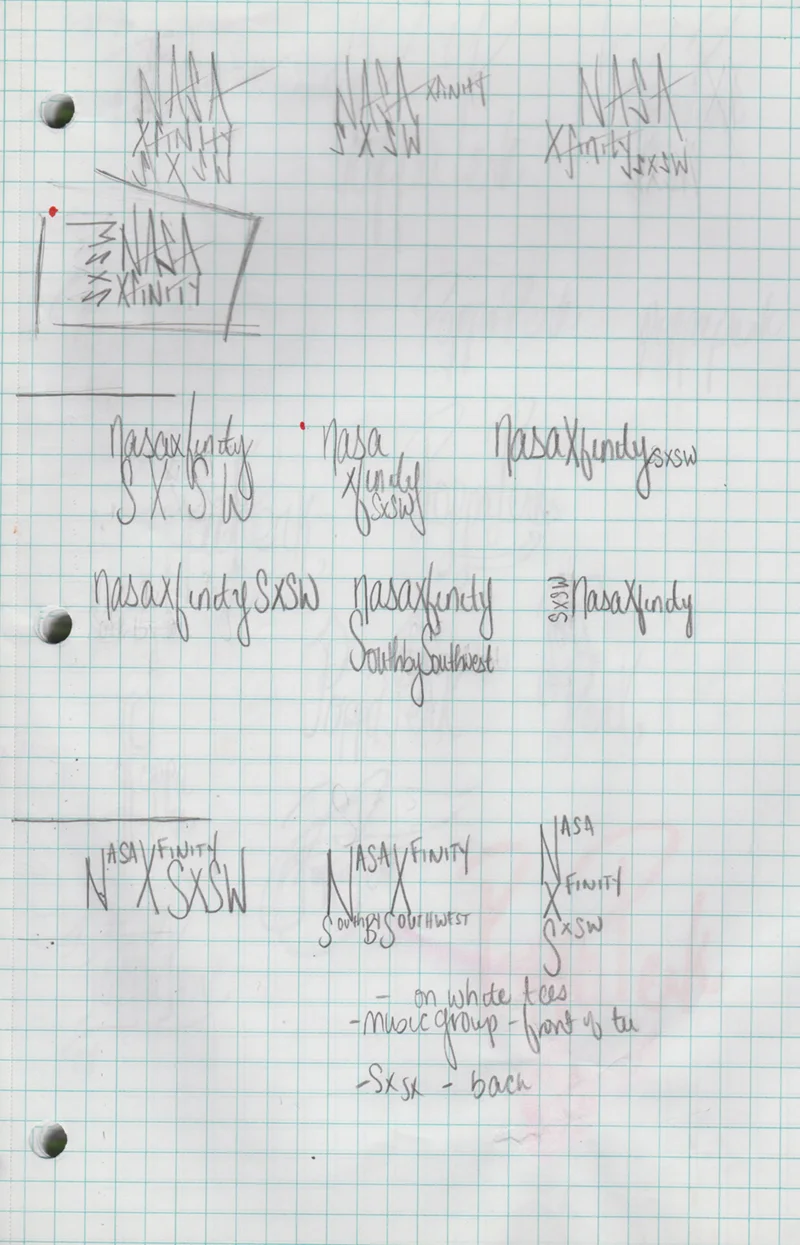 NASA
XFINITY
SXSW
NASA XFINITY
SXSW
NASA
Xfinity SXSW
SXSW NASA
XFINITY
nasaxfinity
SXSW
nasa
xfinity
SXSW
nasaXfinity SXSW
nasaxfinity SXSW
nasaxfinity
SouthbySouthwest
SXSW nasaXfinity
NASA XFINITY SXSW
NASA XFINITY
SOUTHBYSOUTHWEST
NASA
XFINITY
SXSW
- on white tees
- music group - front of tee
- SXSX - back